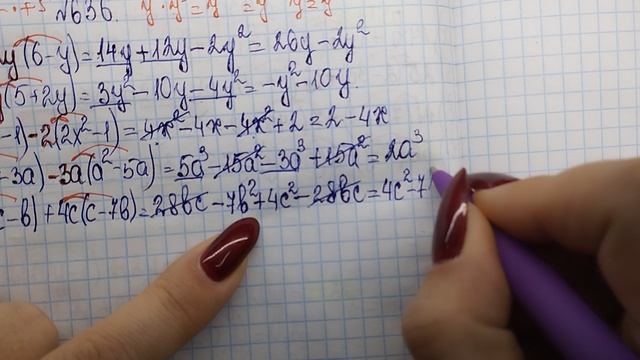 №636.
y(6-y)=14y+12y-2y²=26y-2y²
(5+2y)=3y²-10y-4y²=-y²-10y.
-1)-2(2x²-1)=4x²-4x-4x²+2=2-4x
+3a)-3a(a²-5a)=5a³-15a²-3a³+15a²=2a³
c-b)+4c(c-7b)=28bc-7b²+4c²-28bc=4c²-7